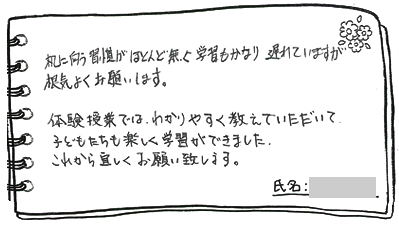 机に向う習慣がほとんど無く学習もかなり遅れていますが
根気よくお願いします。
体験授業では、わかりやすく教えていただいて、
子どもたちも楽しく学習ができました。
これから宜しくお願い致します。
氏名: